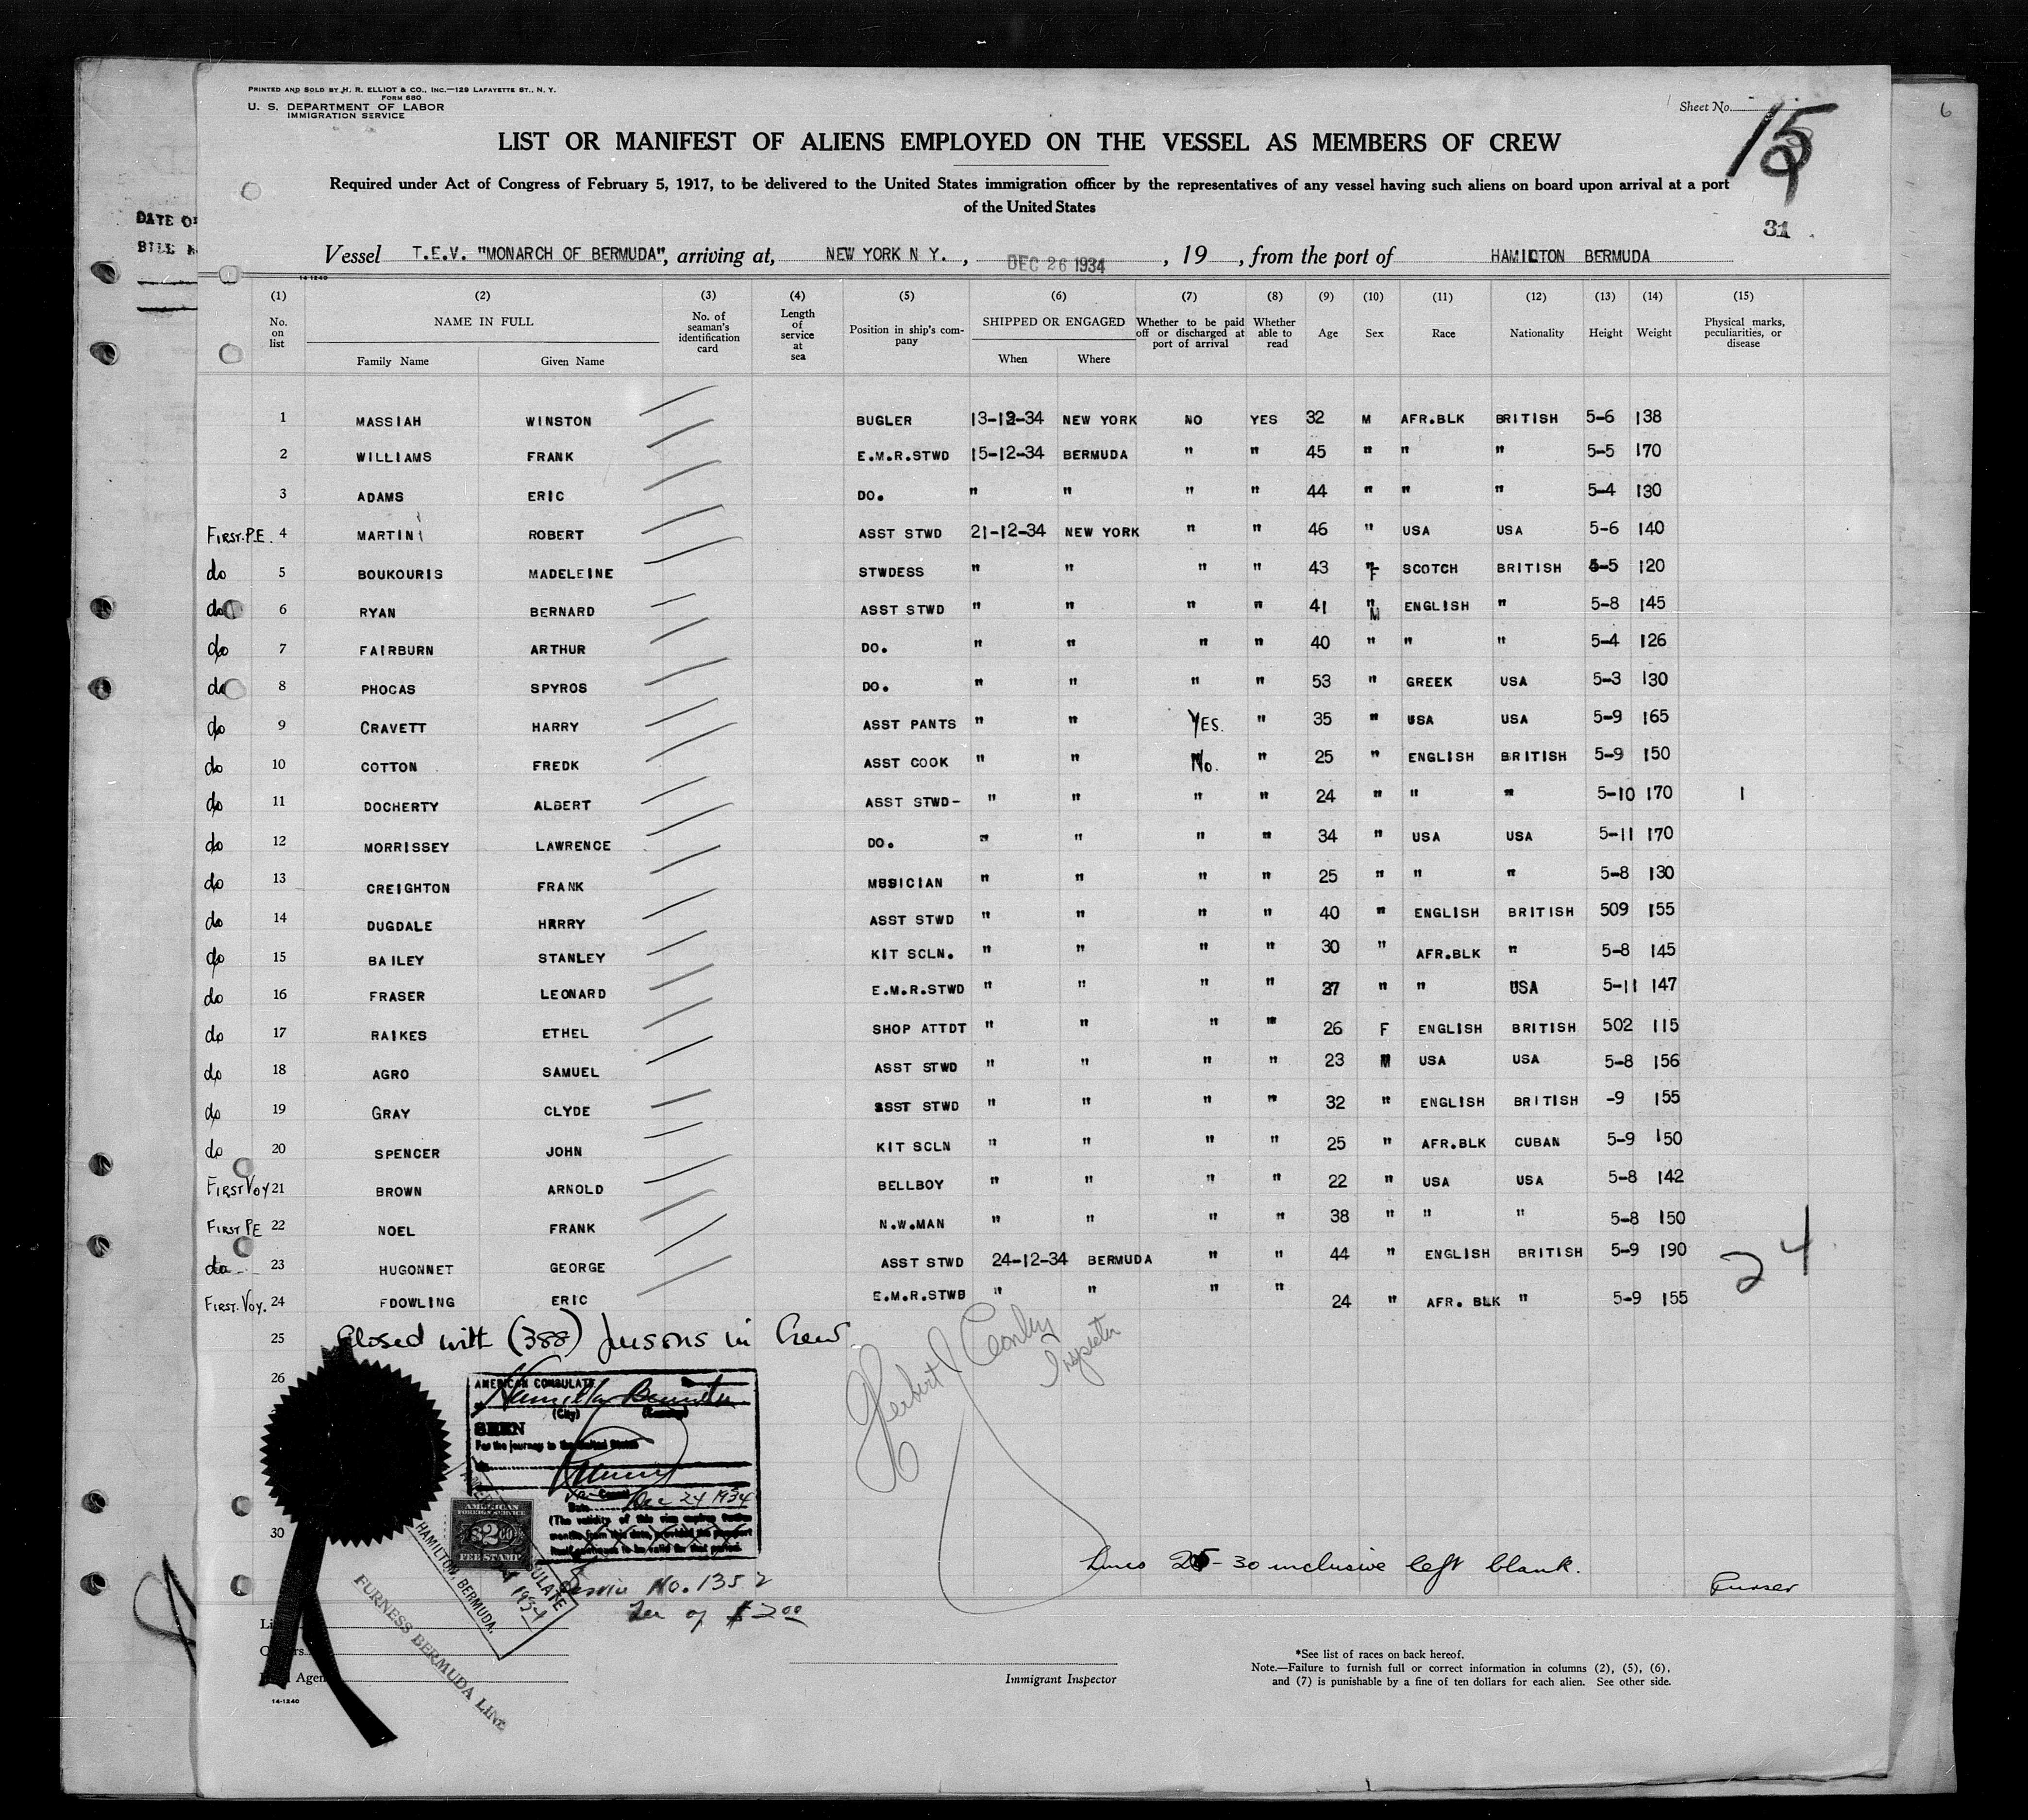 PRINTED AND SOLD BY H. R. ELLIOT & CO., INC.—129 LAFAYETTE ST., N. Y.
FORM 680
U. S. DEPARTMENT OF LABOR
IMMIGRATION SERVICE
Sheet No.
15
6
LIST OR MANIFEST OF ALIENS EMPLOYED ON THE VESSEL AS MEMBERS OF CREW
Required under Act of Congress of February 5, 1917, to be delivered to the United States immigration officer by the representatives of any vessel having such aliens on board upon arrival at a port
of the United States
31
DATE OF
Vessel T.E.V. "MONARCH OF BERMUDA", arriving at, NEW YORK N Y. , DEC 26 1934 , 19 , from the port of HAMILTON BERMUDA
14-1240
(1) (2) (3) (4) (5) (6) (7) (8) (9) (10) (11) (12) (13) (14) (15)
No. on list NAME IN FULL Family Name Given Name No. of seaman's identification card Length of service at sea Position in ship's company SHIPPED OR ENGAGED When Where Whether to be paid off or discharged at port of arrival Whether able to read Age Sex Race Nationality Height Weight Physical marks, peculiarities, or disease
1 MASSIAH WINSTON BUGLER 13-12-34 NEW YORK NO YES 32 M AFR.BLK BRITISH 5-6 138
2 WILLIAMS FRANK E.M.R.STWD 15-12-34 BERMUDA " " 45 " " " 5-5 170
3 ADAMS ERIC DO. " " " " 44 " " " 5-4 130
FIRST.P.E. 4 MARTIN ROBERT ASST STWD 21-12-34 NEW YORK " " 46 " USA USA 5-6 140
do 5 BOUKOURIS MADELEINE STWDESS " " " " 43 F SCOTCH BRITISH 5-5 120
do 6 RYAN BERNARD ASST STWD " " " " 41 " M ENGLISH " 5-8 145
do 7 FAIRBURN ARTHUR DO. " " " " 40 " " " 5-4 126
do 8 PHOCAS SPYROS DO. " " " " 53 " GREEK USA 5-3 130
do 9 CRAVETT HARRY ASST PANTS " " YES. " 35 " USA USA 5-9 165
do 10 COTTON FREDK ASST COOK " " No. " 25 " ENGLISH BRITISH 5-9 150
do 11 DOCHERTY ALBERT ASST STWD- " " " " 24 " " " 5-10 170 1
do 12 MORRISSEY LAWRENCE DO. " " " " 34 " USA USA 5-11 170
do 13 CREIGHTON FRANK MUSICIAN " " " " 25 " " " 5-8 130
do 14 DUGDALE HRRRY ASST STWD " " " " 40 " ENGLISH BRITISH 509 155
do 15 BAILEY STANLEY KIT SCLN. " " " " 30 " AFR.BLK " 5-8 145
do 16 FRASER LEONARD E.M.R.STWD " " " " 37 " " USA 5-11 147
do 17 RAIKES ETHEL SHOP ATTDT " " " " 26 F ENGLISH BRITISH 502 115
do 18 AGRO SAMUEL ASST STWD " " " " 23 M USA USA 5-8 156
do 19 GRAY CLYDE ASST STWD " " " " 32 " ENGLISH BRITISH -9 155
do 20 SPENCER JOHN KIT SCLN " " " " 25 " AFR.BLK CUBAN 5-9 150
FIRST VOY 21 BROWN ARNOLD BELLBOY " " " " 22 " USA USA 5-8 142
FIRST PE 22 NOEL FRANK N.W.MAN " " " " 38 " " " 5-8 150
23 HUGONNET GEORGE ASST STWD 24-12-34 BERMUDA " " 44 " ENGLISH BRITISH 5-9 190
24
FIRST. VOY. 24 FDOWLING ERIC E.M.R.STWB " " " " 24 " AFR. BLK " 5-9 155
25 Closed with (388) persons in Crew
26
AMERICAN CONSULATE
Hamilton Bermuda
(City) (Country)
SEEN
For the journey to the United States
Vice Consul
Date Dec 24 1934
(The validity of this visa expires twelve
months from this date, provided the passport
itself continues to be valid for that period.
Herbert J. Conley
Inspector
30
AMERICAN
FOREIGN SERVICE
$2.00
FEE STAMP
HAMILTON, BERMUDA.
1934
Service No. 1352
Fee of $2.00
FURNESS BERMUDA LINE
Lines 25-30 inclusive left blank.
Purser
Immigrant Inspector
*See list of races on back hereof.
Note.—Failure to furnish full or correct information in columns (2), (5), (6),
and (7) is punishable by a fine of ten dollars for each alien. See other side.
14-1240